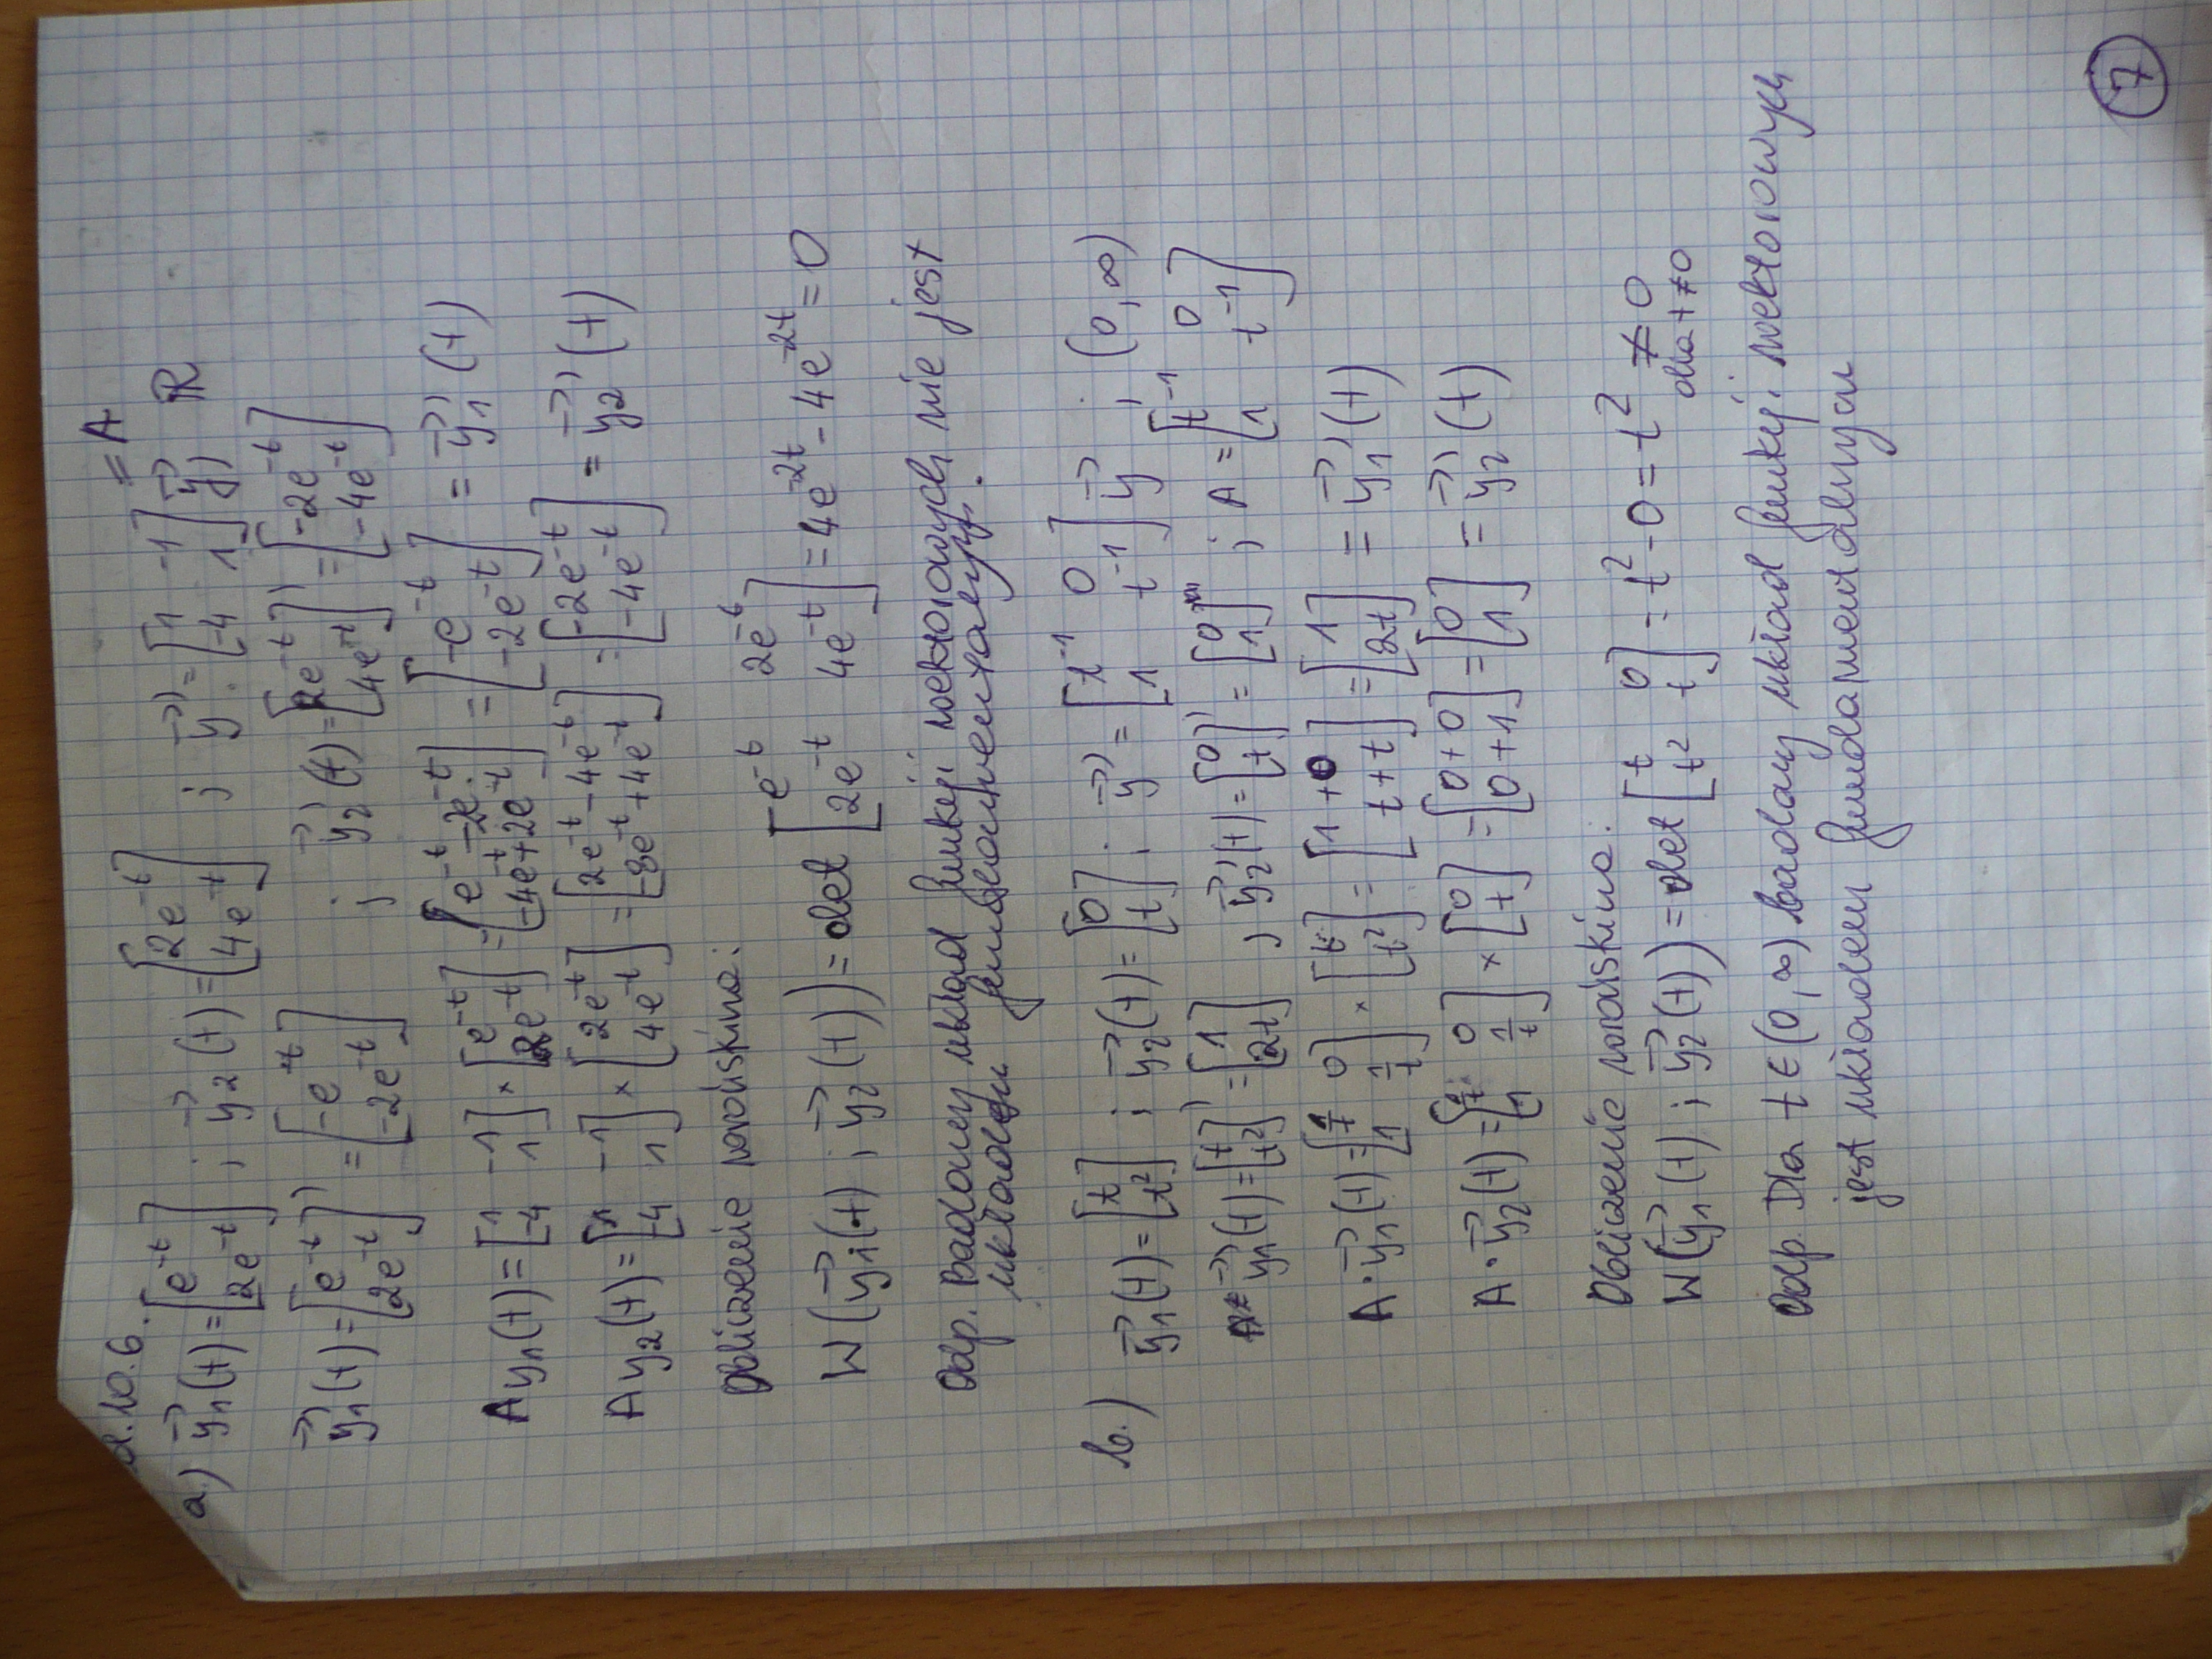 d. 10.6.
= A
a.) y⃗₁(t) = [e⁻ᵗ; 2e⁻ᵗ] ; y⃗₂(t) = [2e⁻ᵗ; 4e⁻ᵗ] ; y⃗' = [1 -1; -4 1] y⃗ ) ℝ
y⃗₁'(t) = [e⁻ᵗ; 2e⁻ᵗ]' = [-e⁻ᵗ; -2e⁻ᵗ] ; y⃗₂'(t) = [2e⁻ᵗ; 4e⁻ᵗ]' = [-2e⁻ᵗ; -4e⁻ᵗ]
A y₁(t) = [1 -1; -4 1] × [e⁻ᵗ; 2e⁻ᵗ] = [e⁻ᵗ-2e⁻ᵗ; -4e⁻ᵗ+2e⁻ᵗ] = [-e⁻ᵗ; -2e⁻ᵗ] = y⃗₁'(t)
A y₂(t) = [1 -1; -4 1] × [2e⁻ᵗ; 4e⁻ᵗ] = [2e⁻ᵗ-4e⁻ᵗ; -8e⁻ᵗ+4e⁻ᵗ] = [-2e⁻ᵗ; -4e⁻ᵗ] = y⃗₂'(t)
Obliczenie wrońskina:
W(y⃗₁(t) ; y⃗₂(t)) = det [e⁻ᵗ 2e⁻ᵗ; 2e⁻ᵗ 4e⁻ᵗ] = 4e⁻²ᵗ - 4e⁻²ᵗ = 0
Odp. Badany układ funkcji wektorowych nie jest
układem fundamentalnym.
b.) y⃗₁(t) = [t; t²] ; y⃗₂(t) = [0; t] ; y⃗' = [t⁻¹ 0; 1 t⁻¹] y⃗ ; (0, ∞)
y⃗₁'(t) = [t; t²]' = [1; 2t] , y⃗₂'(t) = [0; t]' = [0; 1] ; A = [t⁻¹ 0; 1 t⁻¹]
A · y⃗₁(t) = [1/t 0; 1 1/t] × [t; t²] = [1+0; t+t] = [1; 2t] = y⃗₁'(t)
A · y⃗₂(t) = [1/t 0; 1 1/t] × [0; t] = [0+0; 0+1] = [0; 1] = y⃗₂'(t)
Obliczenie wrońskina:
W(y⃗₁(t) ; y⃗₂(t)) = det [t 0; t² t] = t² - 0 = t² ≠ 0
dla t ≠ 0
Odp. Dla t ∈ (0, ∞) badany układ funkcji wektorowych
jest układem fundamentalnym
7